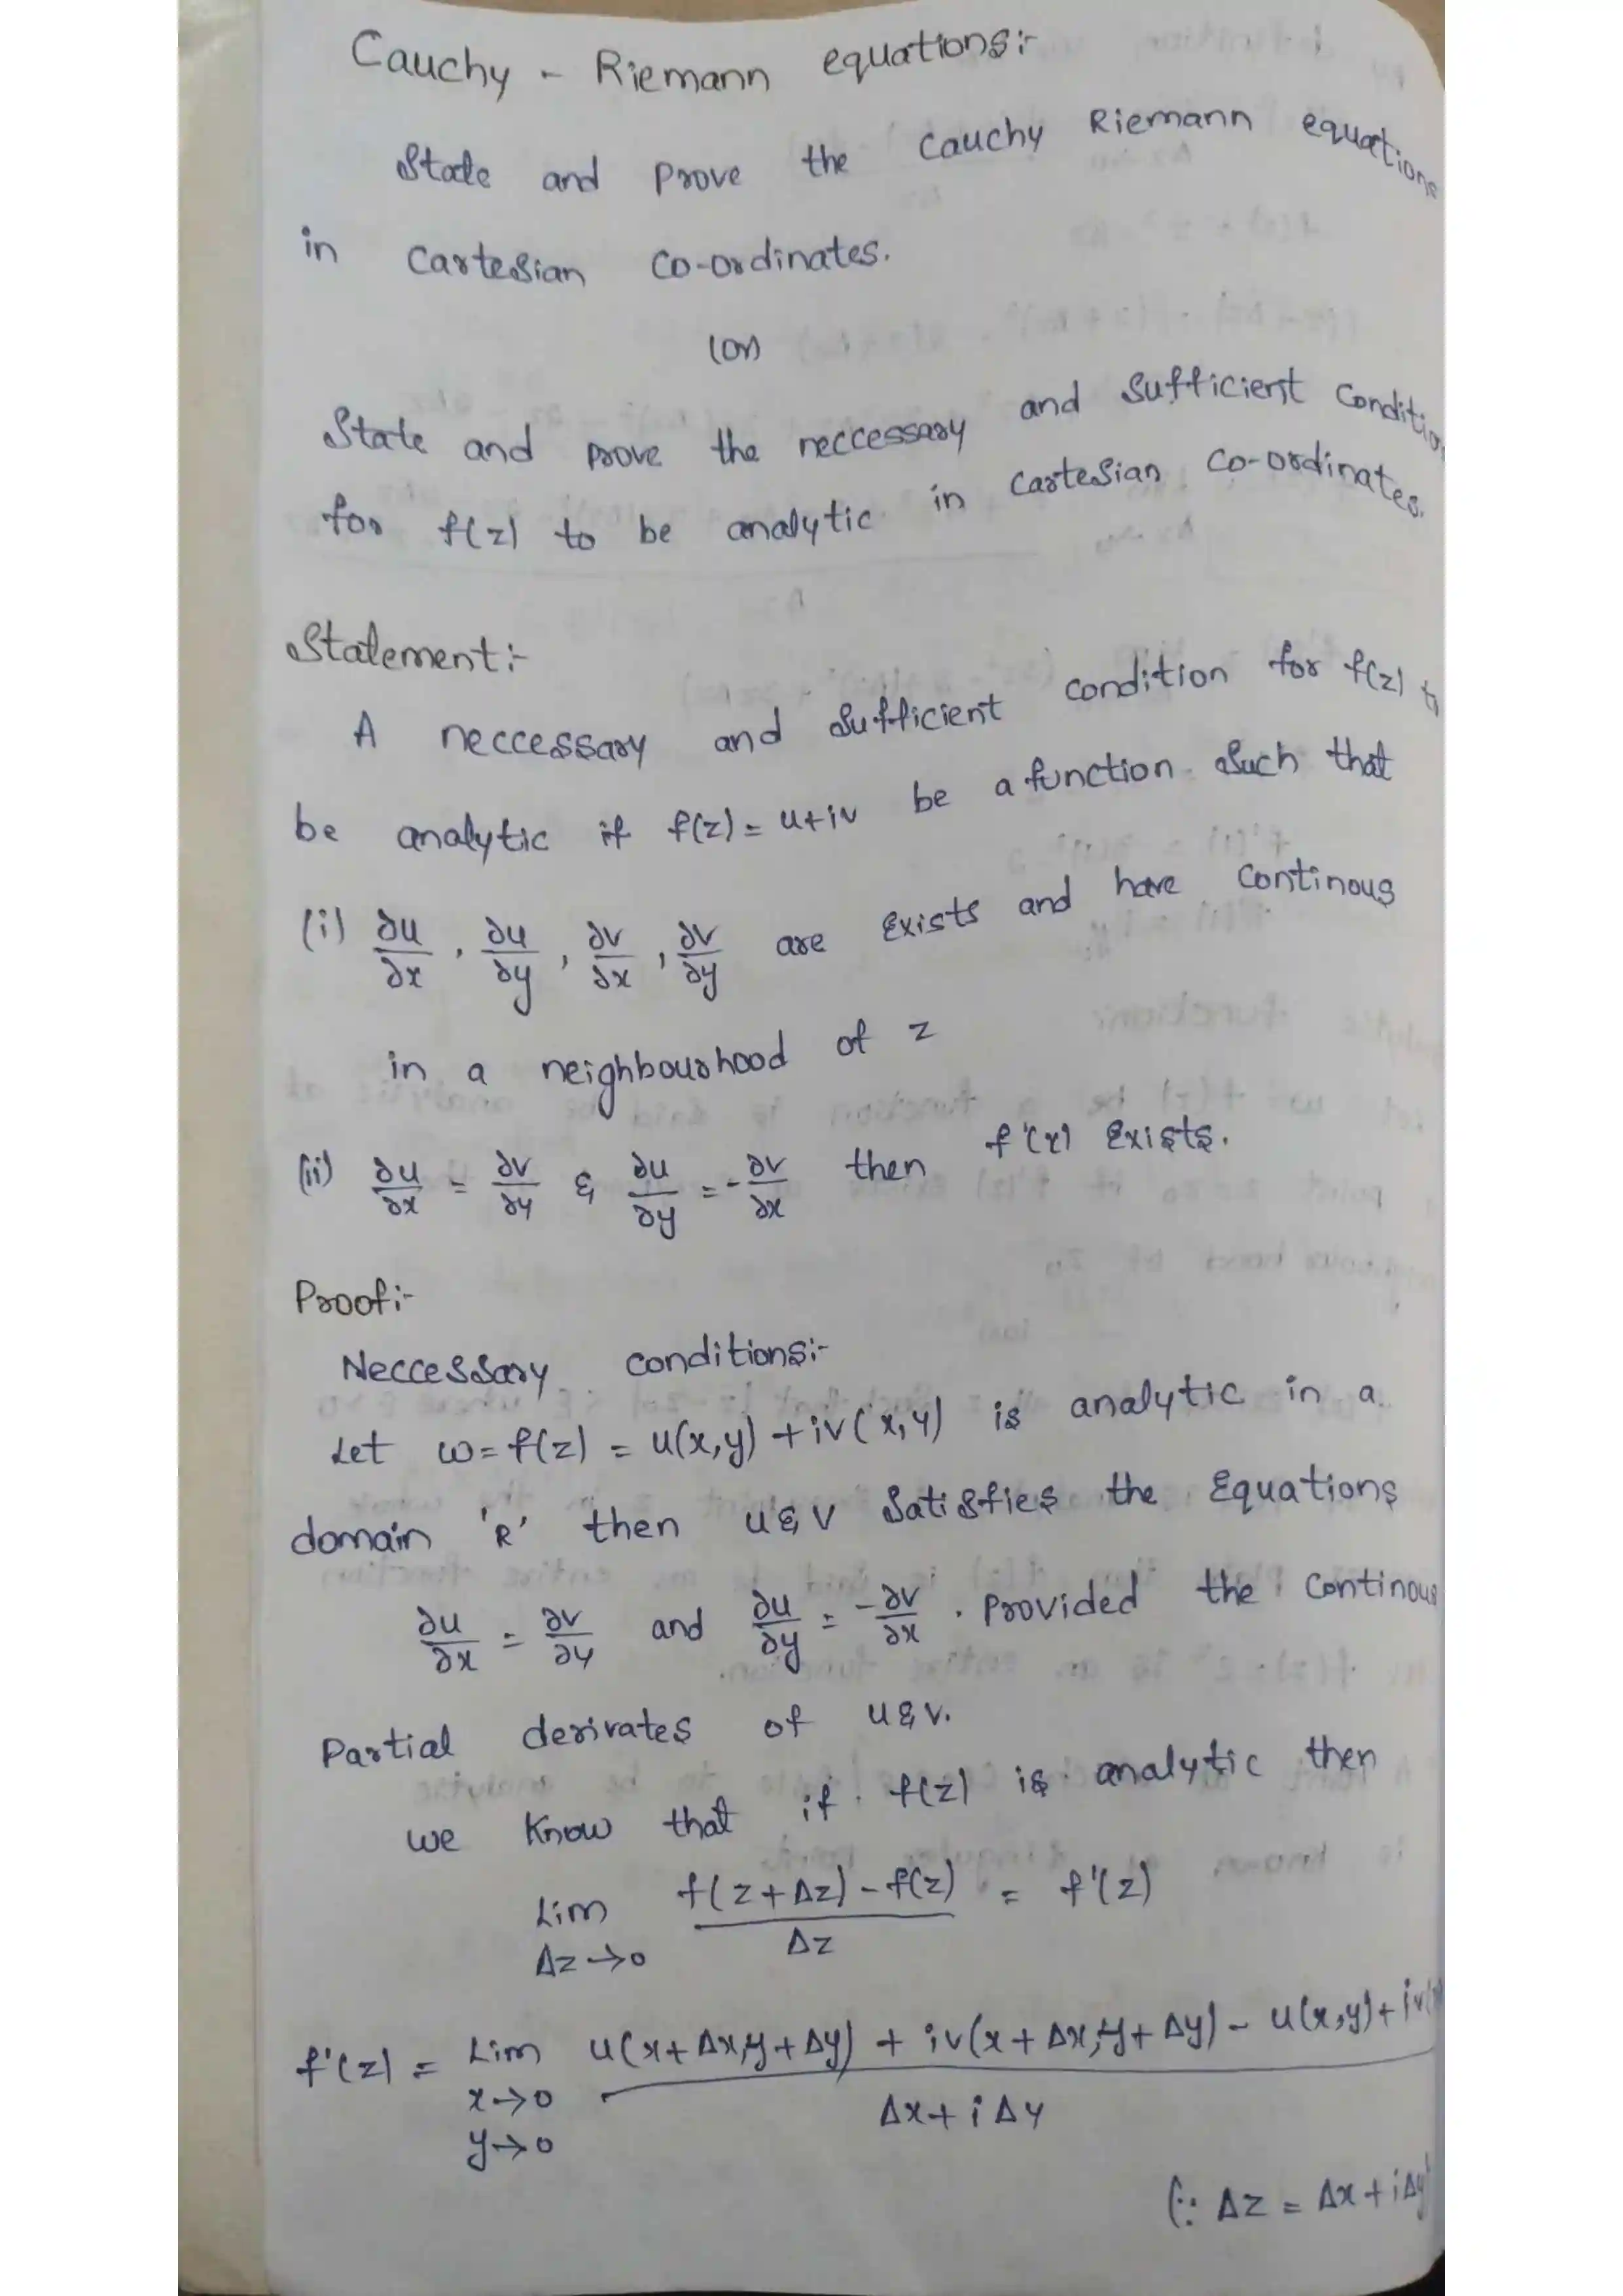 Cauchy - Riemann equations:-
State and prove the Cauchy Riemann equations
in Cartesian Co-ordinates.
(or)
State and prove the neccessary and Sufficient Condition
for f(z) to be analytic in Cartesian Co-ordinates.
Statement:-
A neccessary and Sufficient condition for f(z) to
be analytic if f(z) = u+iv be a function Such that
(i) ∂u/∂x , ∂u/∂y , ∂v/∂x , ∂v/∂y are Exists and have Continous
in a neighbourhood of z
(ii) ∂u/∂x = ∂v/∂y & ∂u/∂y = -∂v/∂x then f'(x) Exists.
Proof:-
Neccessary conditions:-
Let w = f(z) = u(x,y) + iv(x,y) is analytic in a
domain 'R' then u & v Satisfies the Equations
∂u/∂x = ∂v/∂y and ∂u/∂y = -∂v/∂x . Provided the Continous
Partial derivates of u & v.
we Know that if f(z) is analytic then
Lim Δz→0 f(z+Δz) - f(z) / Δz = f'(z)
f'(z) = Lim x→0 y→0 u(x+Δx,y+Δy) + iv(x+Δx,y+Δy) - u(x,y) + iv( / Δx + iΔy
(∵ Δz = Δx + iΔy